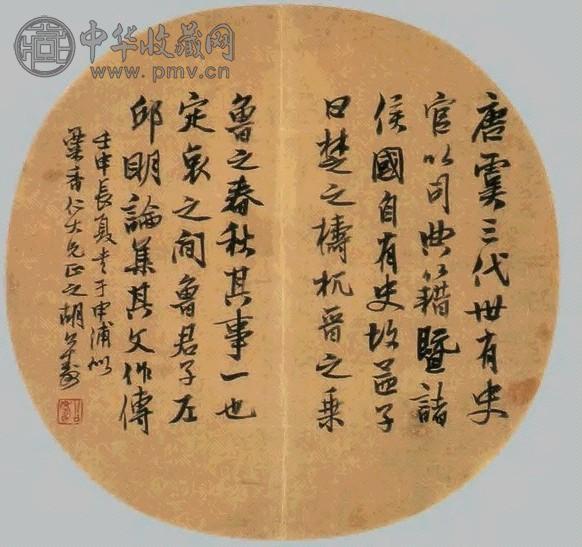 中华收藏网
www.pmv.cn
唐虞三代世有史
官以司典籍暨諸
侯國自有史故孟子
曰楚之檮杌晉之乘
魯之春秋其事一也
定哀之間魯君子左
邱明論集其文作傳
壬申長夏書于申浦似
粟香仁大兄正之胡公壽